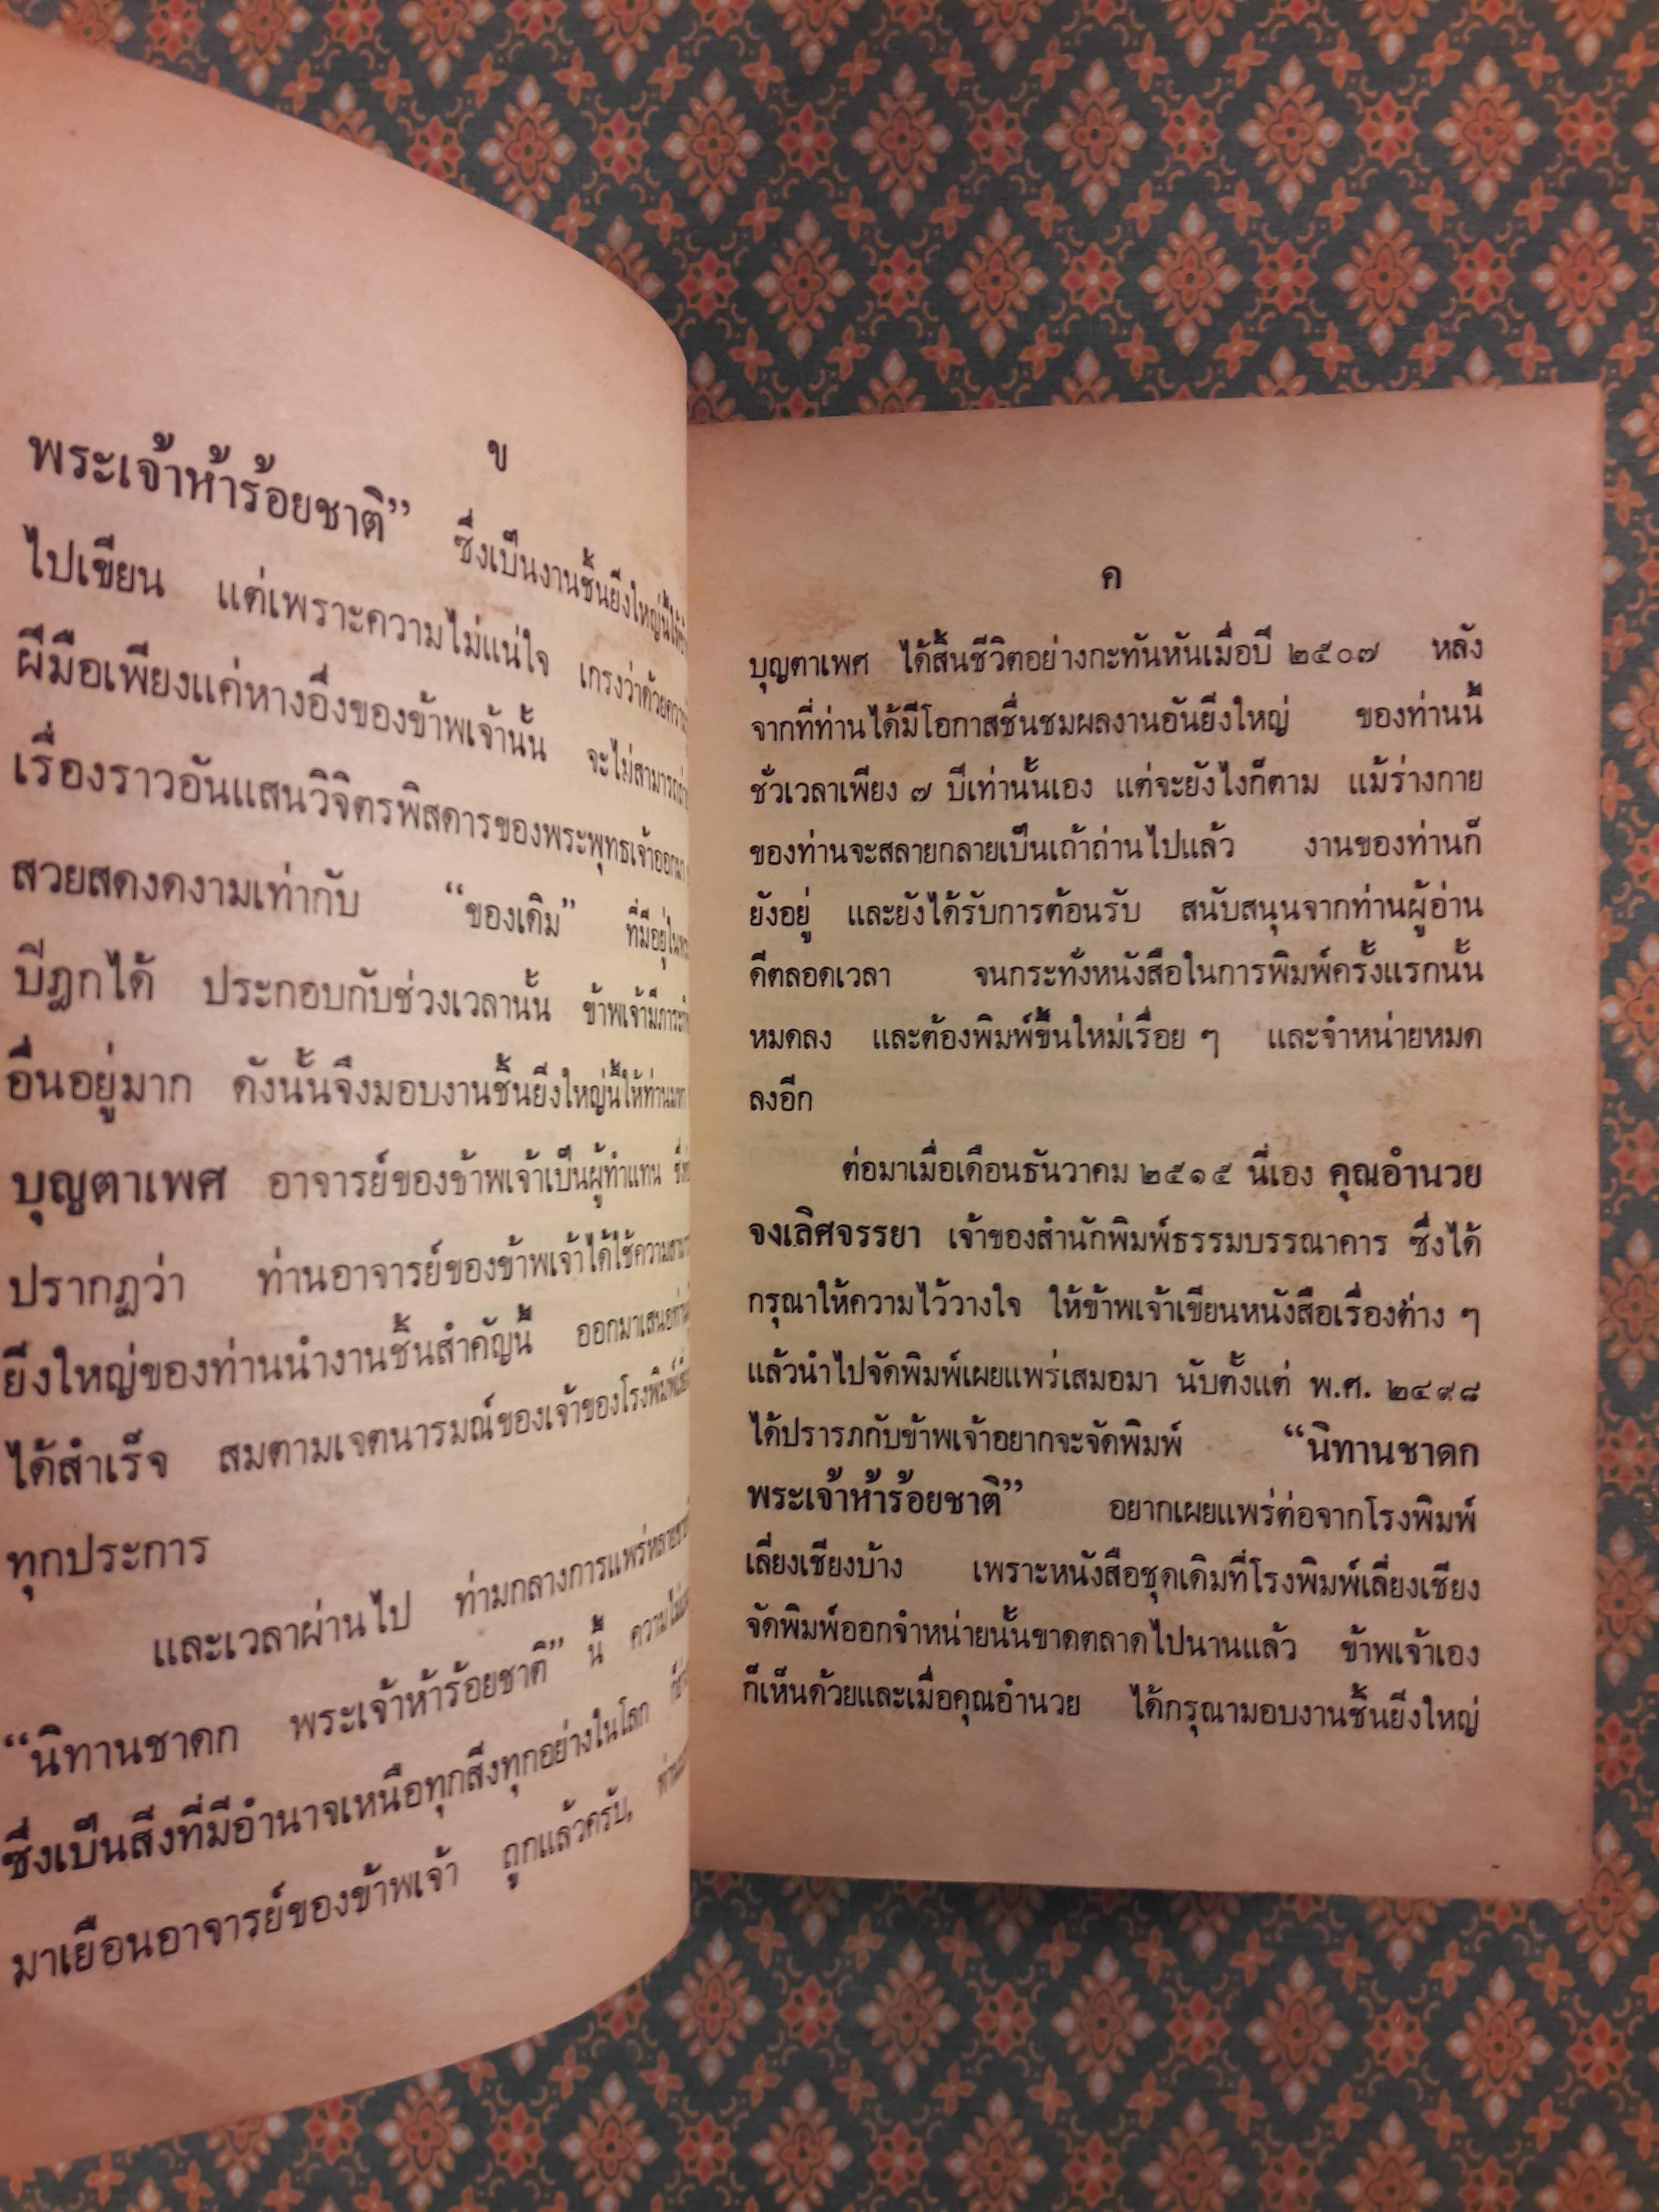 ข
พระเจ้าห้าร้อยชาติ” ซึ่งเป็นงานชิ้นยิ่งใหญ่นี้
ไปเขียน แต่เพราะความไม่แน่ใจ เกรงว่าด้วย
ฝีมือเพียงแค่หางอึ่งของข้าพเจ้านั้น จะไม่สามารถ
เรื่องราวอันแสนวิจิตรพิสดารของพระพุทธเจ้าออกมา
สวยสดงดงามเท่ากับ “ของเดิม” ที่มีอยู่ใน
ปีฎกได้ ประกอบกับช่วงเวลานั้น ข้าพเจ้ามีภาระ
อื่นอยู่มาก ดังนั้นจึงมอบงานชิ้นยิ่งใหญ่นี้ให้ท่าน
บุญตาเพศ อาจารย์ของข้าพเจ้าเป็นผู้ทำแทน
ปรากฏว่า ท่านอาจารย์ของข้าพเจ้าได้ใช้ความ
ยิ่งใหญ่ของท่านนำงานชิ้นสำคัญนี้ ออกมาเสนอ
ได้สำเร็จ สมตามเจตนารมณ์ของเจ้าของโรงพิมพ์
ทุกประการ
และเวลาผ่านไป ท่ามกลางการแพร่หลาย
“นิทานชาดก พระเจ้าห้าร้อยชาติ” นี้
ซึ่งเป็นสิ่งที่มีอำนาจเหนือทุกสิ่งทุกอย่างในโลก
มาเยือนอาจารย์ของข้าพเจ้า ถูกแล้วครับ,
ค
บุญตาเพศ ได้สิ้นชีวิตอย่างกะทันหันเมื่อปี ๒๕๐๗ หลัง
จากที่ท่านได้มีโอกาสชื่นชมผลงานอันยิ่งใหญ่ ของท่านนี้
ชั่วเวลาเพียง ๗ ปีเท่านั้นเอง แต่จะยังไงก็ตาม แม้ร่างกาย
ของท่านจะสลายกลายเป็นเถ้าถ่านไปแล้ว งานของท่านก็
ยังอยู่ และยังได้รับการต้อนรับ สนับสนุนจากท่านผู้อ่าน
ดีตลอดเวลา จนกระทั่งหนังสือในการพิมพ์ครั้งแรกนั้น
หมดลง และต้องพิมพ์ขึ้นใหม่เรื่อย ๆ และจำหน่ายหมด
ลงอีก
ต่อมาเมื่อเดือนธันวาคม ๒๕๑๕ นี่เอง คุณอำนวย
จงเลิศจรรยา เจ้าของสำนักพิมพ์ธรรมบรรณาคาร ซึ่งได้
กรุณาให้ความไว้วางใจ ให้ข้าพเจ้าเขียนหนังสือเรื่องต่าง ๆ
แล้วนำไปจัดพิมพ์เผยแพร่เสมอมา นับตั้งแต่ พ.ศ. ๒๔๙๘
ได้ปรารภกับข้าพเจ้าอยากจะจัดพิมพ์ “นิทานชาดก
พระเจ้าห้าร้อยชาติ” อยากเผยแพร่ต่อจากโรงพิมพ์
เลี่ยงเชียงบ้าง เพราะหนังสือชุดเดิมที่โรงพิมพ์เลี่ยงเชียง
จัดพิมพ์ออกจำหน่ายนั้นขาดตลาดไปนานแล้ว ข้าพเจ้าเอง
ก็เห็นด้วยและเมื่อคุณอำนวย ได้กรุณามอบงานชิ้นยิ่งใหญ่